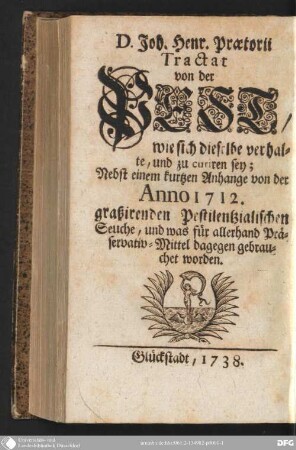 D. Joh. Henr. Prætorii
Tractat
von der
PEST,
wie sich dieselbe verhal-
te, und zu curiren sey;
Nebst einem kurtzen Anhange von der
Anno 1712.
graßirenden Pestilentzialischen
Seuche, und was für allerhand Præ-
servativ-Mittel dagegen gebrau-
chet worden.
Glückstadt, 1738.
DFG